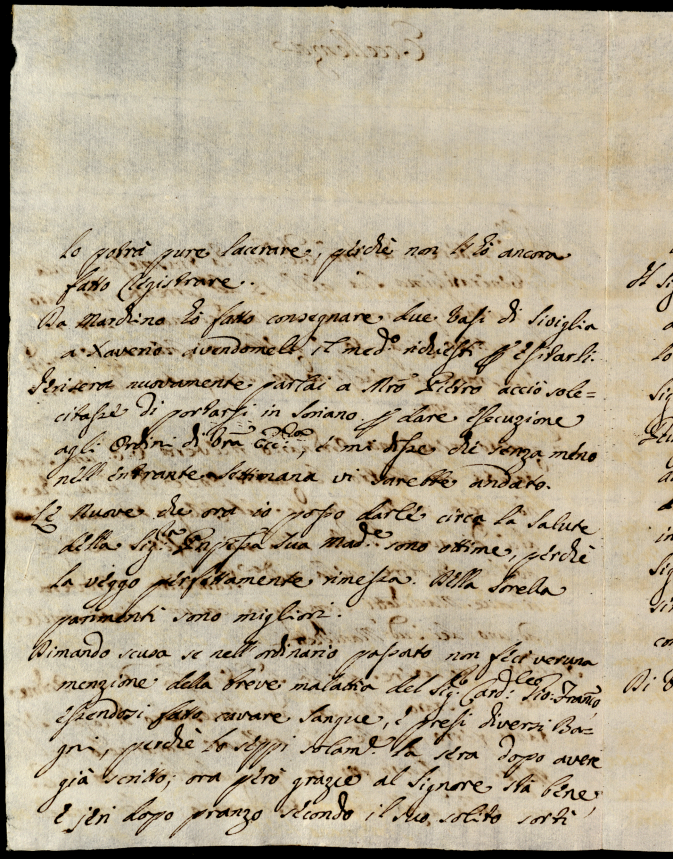 lo potrà pure lacerare, perchè non l'hò ancora
fatto registrare.
Da Mardino hò fatto consegnare due Vasi di Siviglia
a Xaverio avendomeli il med.º richiesti p esitarli.
Jeri sera nuovamente parlai a Mrō Pietro acciò sole=
citasse di portarsi in Soriano p dare esecuzione
agli Ordini di Vrā Ecc., e mi disse che senza meno
nell'entrante settimana vi sarebbe andato.
Le Nuove che ora io posso darle circa la Salute
della Sig.ra Pnpessa Sua Mad.e sono ottime, perchè
la veggo perfettamente rimessa. Della Sorella
parimenti sono migliori.
Dimando scusa se nell'ordinario passato non feci veruna
menzione della breve malattia del Sig.r Card.e Gio: Franco
essendosi fatto cavare sangue, e presi diversi Ba=
gni, perchè lo seppi solam.e la sera dopo avere
già scritto; ora però grazie al Signore stà bene
e jeri dopo pranzo secondo il suo solito sortì